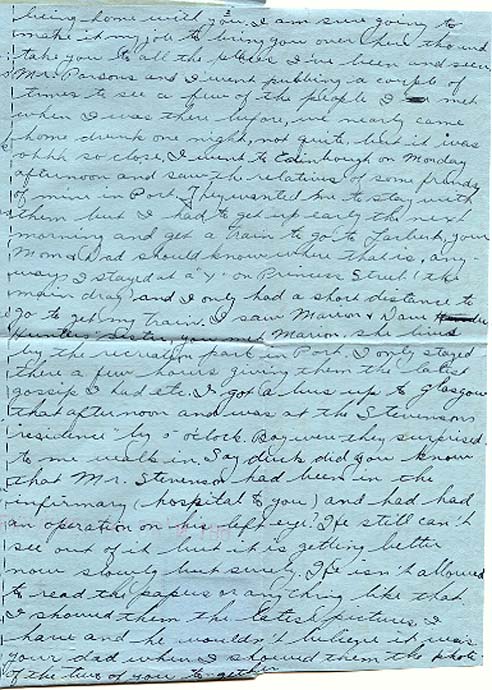 being home with you. I am sure going to
make it my job to bring you over here tho and
take you to all the places I've been and seen.
Mr. Parsons and I went pubbing a couple of
times to see a few of the people I met
when I was there before, we nearly came
home drunk one night, not quite, but it was
ohhh so close. I went to Edinburgh on Monday
afternoon and saw the relatives of some friends
of mine in Port. They wanted me to stay with
them but I had to get up early the next
morning and get a train to go to Larbert, your
Mom & Dad should know where that is, any-
ways I stayed at a "Y" on Princess Street (the
main drag) and I only had a short distance to
go to get my train. I saw Marion & Dave
Hunter's sister, you met Marion, she lives
by the recreation park in Port. I only stayed
there a few hours giving them the latest
gossip I had etc. I got a bus up to Glasgow
that afternoon and was at the Stevensons
"residence" by 5 o'clock. Boy were they surprised
to me walk in. Say did you know
that Mr. Stevenson had been in the
infirmary (hospital to you) and had had
an operation on his left eye? He still can't
see out of it but it is getting better
now slowly but surely. He isn't allowed
to read the papers or anything like that.
I showed them the latest pictures I
have and he wouldn't believe it was
your dad when I showed them the photo
of the two of you together